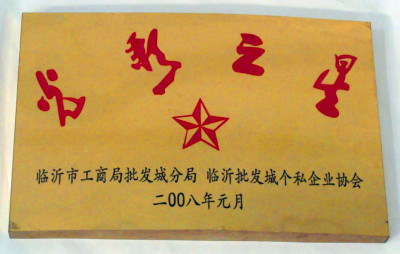 光彩之星
临沂市工商局批发城分局 临沂批发城个私企业协会
二00八年元月